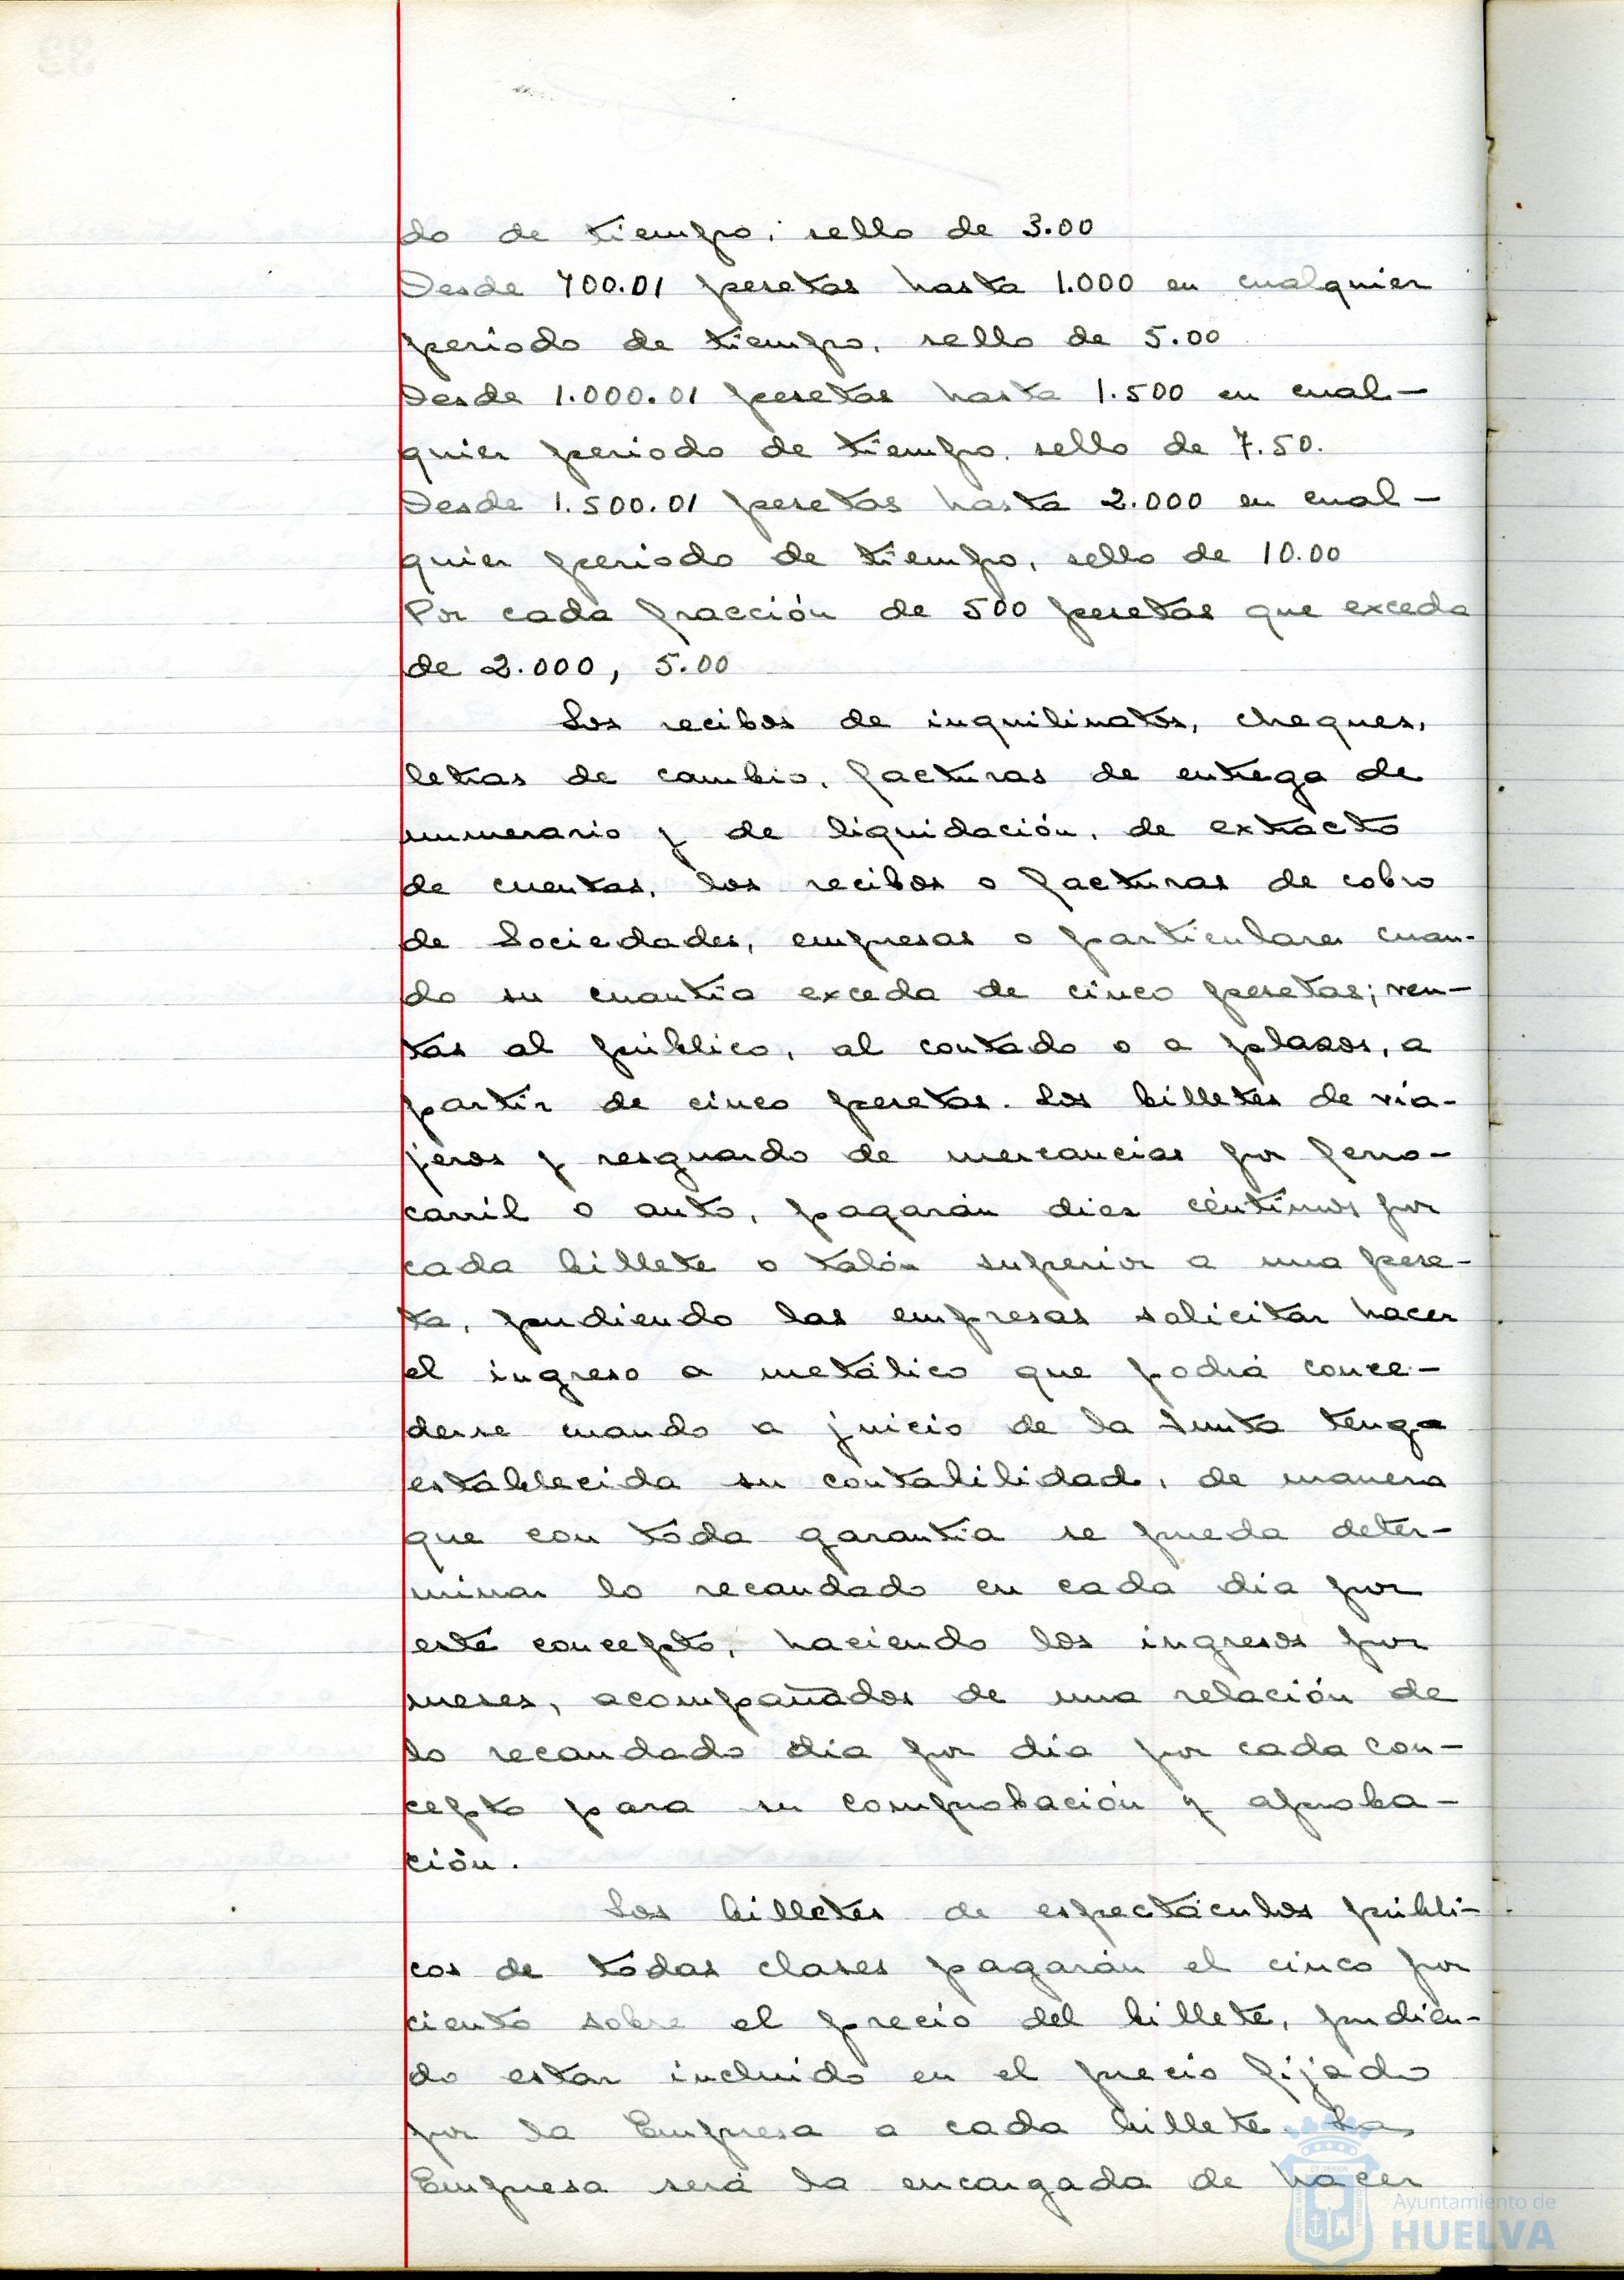 do de tiempo, sello de 3.00
Desde 700.01 pesetas hasta 1.000 en cualquier
periodo de tiempo, sello de 5.00
Desde 1.000.01 pesetas hasta 1.500 en cual-
quier periodo de tiempo, sello de 7.50.
Desde 1.500.01 pesetas hasta 2.000 en cual-
quier periodo de tiempo, sello de 10.00
Por cada fracción de 500 pesetas que exceda
de 2.000, 5.00
Los recibos de inquilinatos, cheques,
letras de cambio, facturas de entrega de
numerario y de liquidación, de extracto
de cuentas, los recibos o facturas de cobro
de Sociedades, empresas o particulares cuan-
do su cuantía exceda de cinco pesetas; ven-
tas al público, al contado o a plazos, a
partir de cinco pesetas. Los billetes de via-
jeros y resguardo de mercancias por ferro-
carril o auto, pagarán diez céntimos por
cada billete o talón superior a una pese-
ta, pudiendo las empresas solicitar hacer
el ingreso a metálico que podrá conce-
derse cuando a juicio de la Junta tenga
establecida su contabilidad, de manera
que con toda garantía se pueda deter-
minar lo recaudado en cada día por
este concepto, haciendo los ingresos por
meses, acompañados de una relación de
lo recaudado día por día por cada con-
cepto para su comprobación y aproba-
ción.
Los billetes de espectáculos públi-
cos de todas clases pagarán el cinco por
ciento sobre el precio del billete, pudien-
do estar incluido en el precio fijado
por la Empresa a cada billete. La
Empresa será la encargada de hacer
Ayuntamiento de
HUELVA